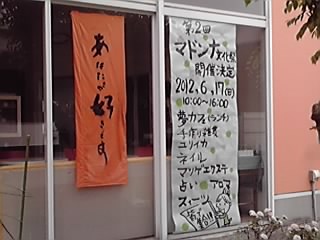 あなたが好きです
第2回
マドンナ文化祭
開催決定
2012.6.17(日)
10:00~16:00
夢カフェ(ランチ)
手作り雑貨
ユリイカ
ネイル
マツゲエクステ
占い アロマ
スイーツ